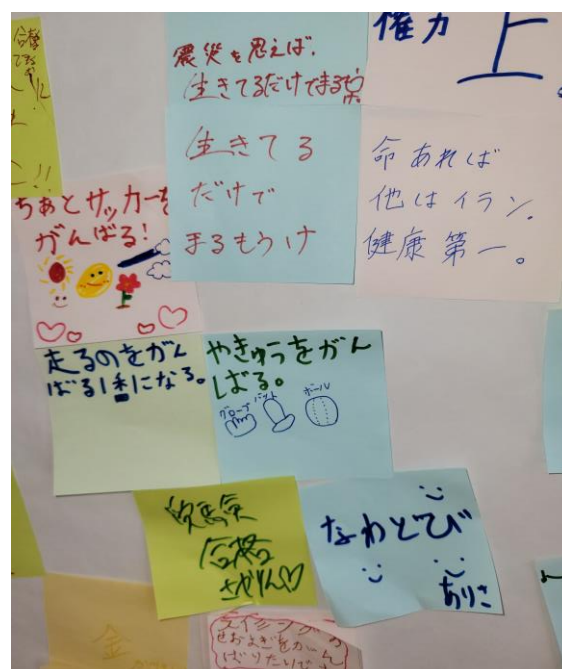 合格
権力
上
震災を思えば、
生きてるだけでまる
生きてる
だけで
まるもうけ
命あれば
他はイラン。
健康第一。
ちぁとサッカーを
がんばる!
走るのをがん
ばる1番になる。
やきゅうをがん
ばる。
グローブ
バット
ボール
合格
なわとび
ありさ
金